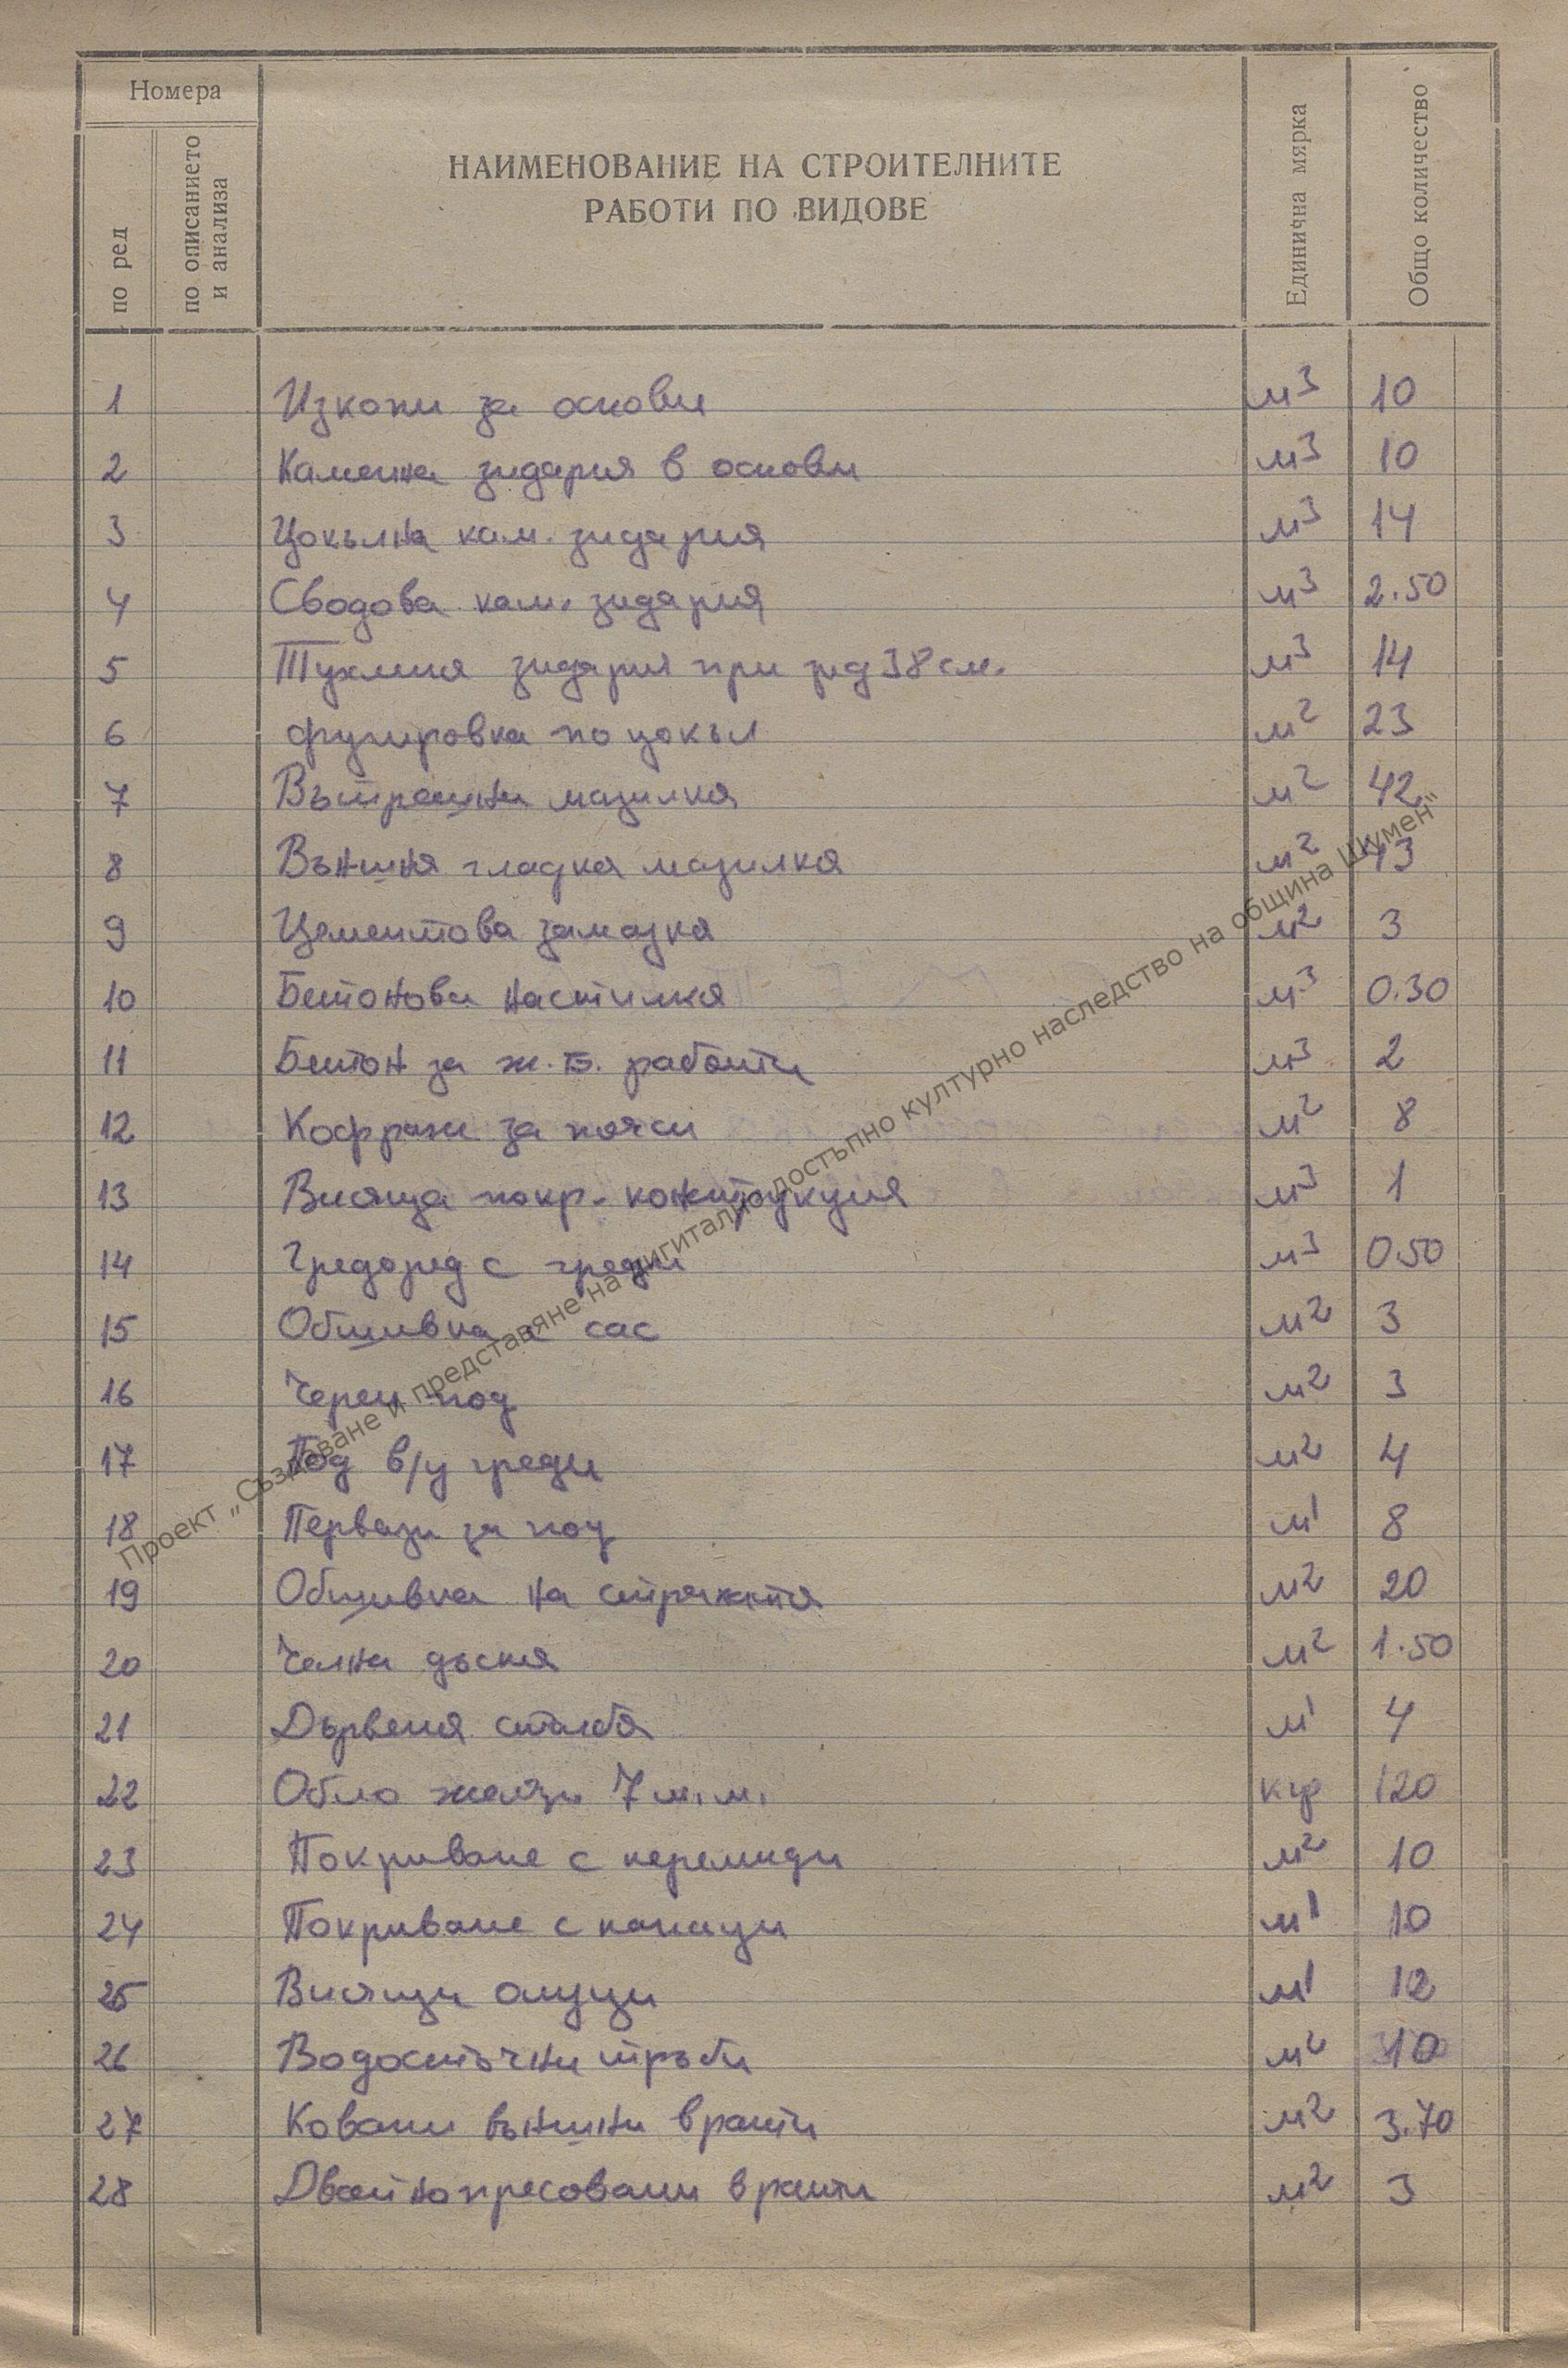 Номера
по ред
по описанието и анализа
НАИМЕНОВАНИЕ НА СТРОИТЕЛНИТЕ
РАБОТИ ПО ВИДОВЕ
Единична мярка
Общо количество
1 Изкопи за основи м3 10
2 Каменна зидария в основи м3 10
3 Цокълна кам. зидария м3 14
4 Сводова кам. зидария м3 2.50
5 Тухлена зидария при зид 38 см. м3 14
6 фугировка по цокъл м2 23
7 Вътрешни мазилка м2 42
8 Външна гладка мазилка м2 13
9 Цементова замазка м2 3
10 Бетонова настилка м3 0.30
11 Бетон за ж.б. работи м3 2
12 Кофраж за пояси м2 8
13 Висяща покр. конструкция м3 1
14 Гредоред с греди м3 0.50
15 Обшивка с сас м2 3
16 Черен под м2 3
17 Под в/у греди м2 4
18 Первази за под м1 8
19 Обшивка на стряхата м2 20
20 Челна дъска м2 1.50
21 Дървена стълба м1 4
22 Обло желязо 7 м.м. кгр 120
23 Покриване с керемиди м2 10
24 Покриване с капаци м1 10
25 Висящи олуци м1 12
26 Водосточни тръби 10
27 Ковани външни врати м2 3.70
28 Двойнопресовани врати м2 3
Проект „Създаване и представяне на дигитално достъпно културно наследство на община Шумен“